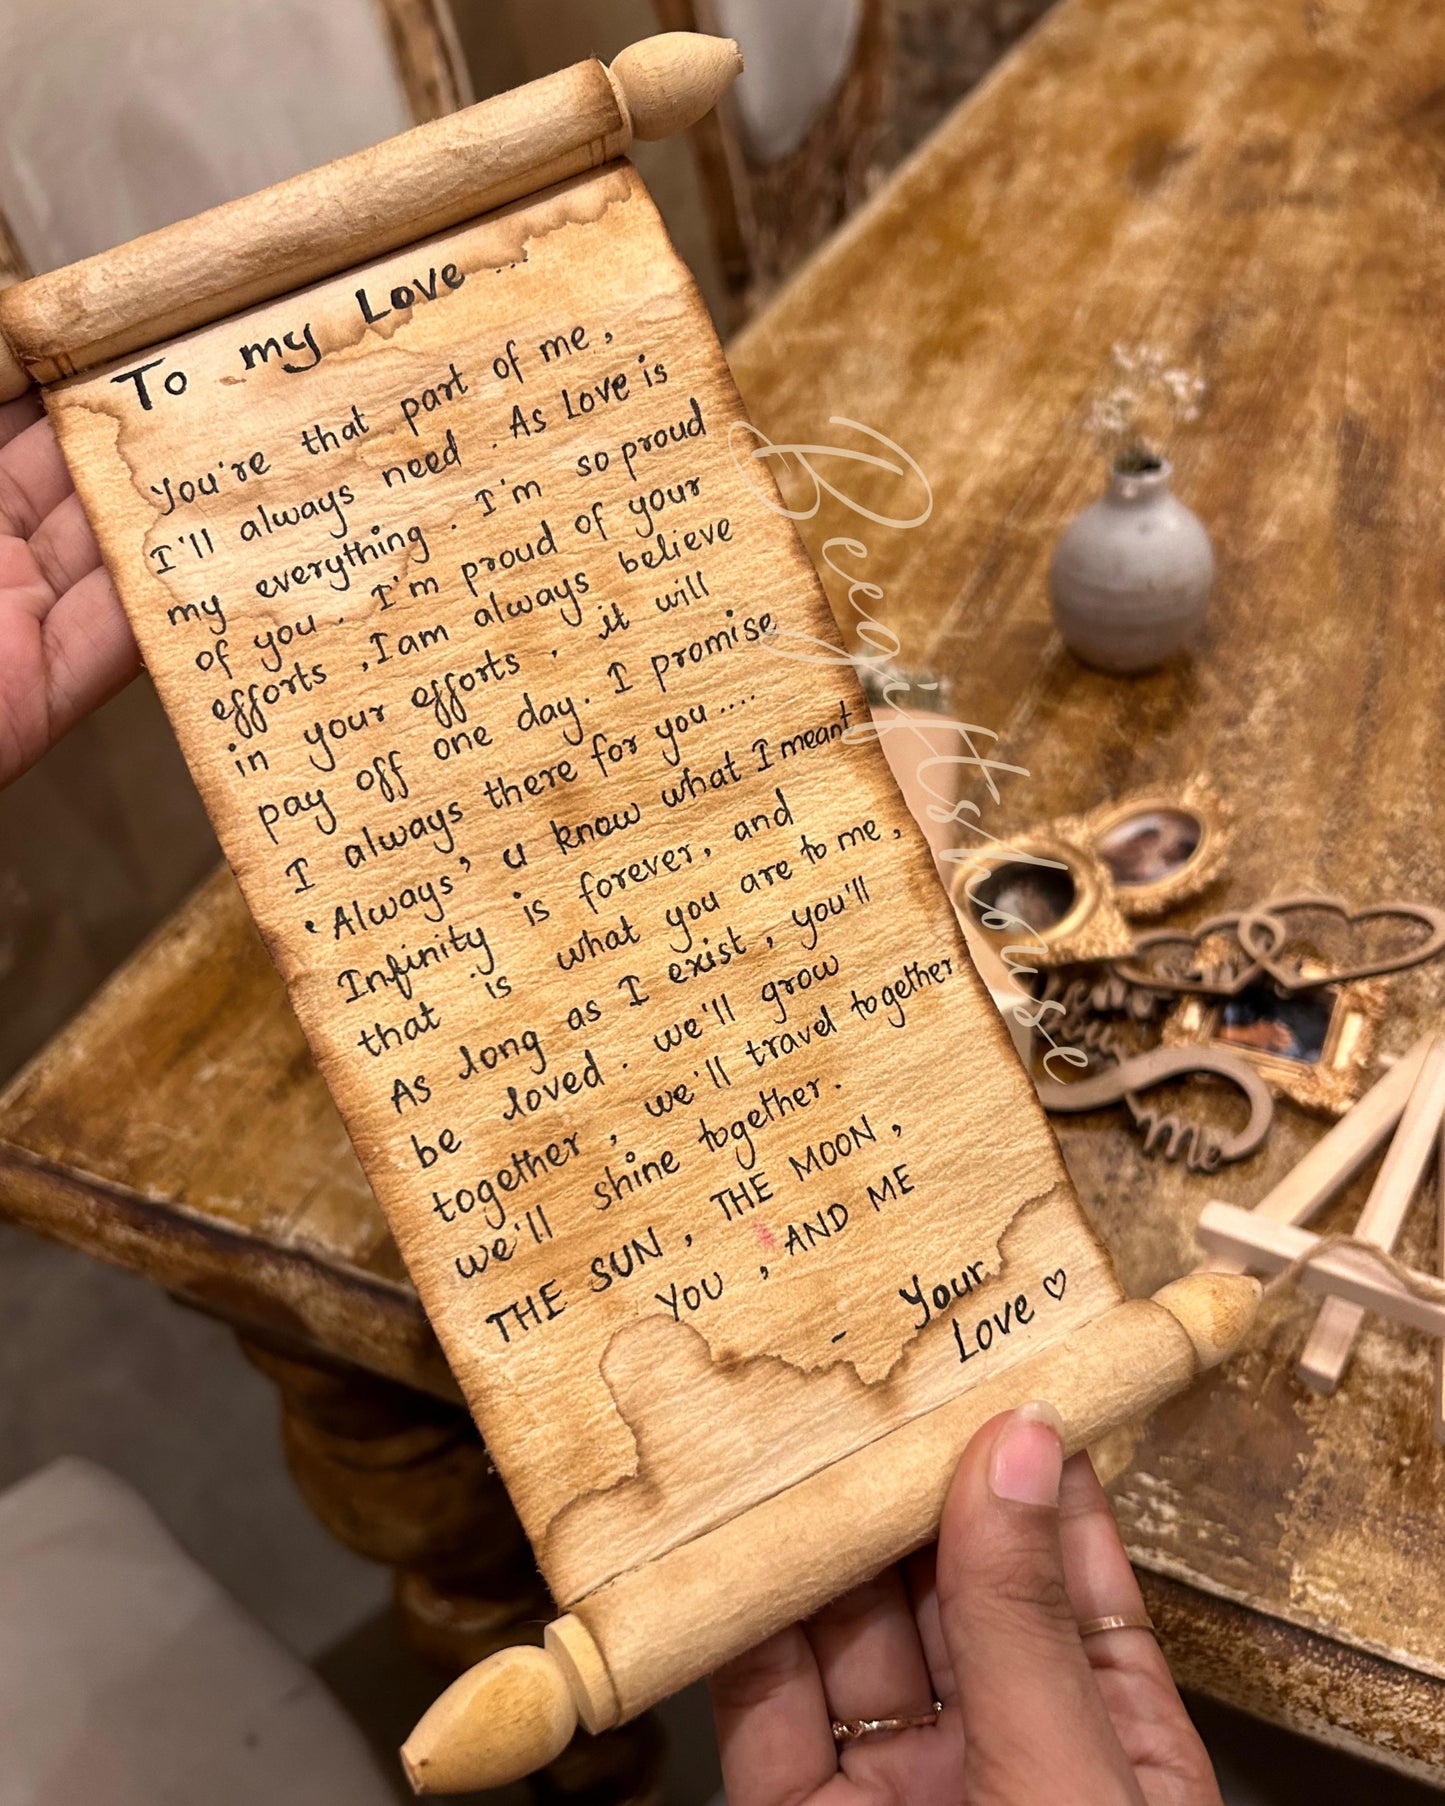 To my Love ...
You're that part of me,
I'll always need. As Love is
my everything. I'm so proud
of you. I'm proud of your
efforts, I am always believe
in your efforts, it will
pay off one day. I promise
I always there for you....
'Always' u know what I meant
Infinity is forever, and
that is what you are to me,
As long as I exist, you'll
be loved. we'll grow
together, we'll travel together
we'll shine together.
THE SUN, THE MOON,
YOU, AND ME
- Your
Love ♡
Beegiftshouse
me